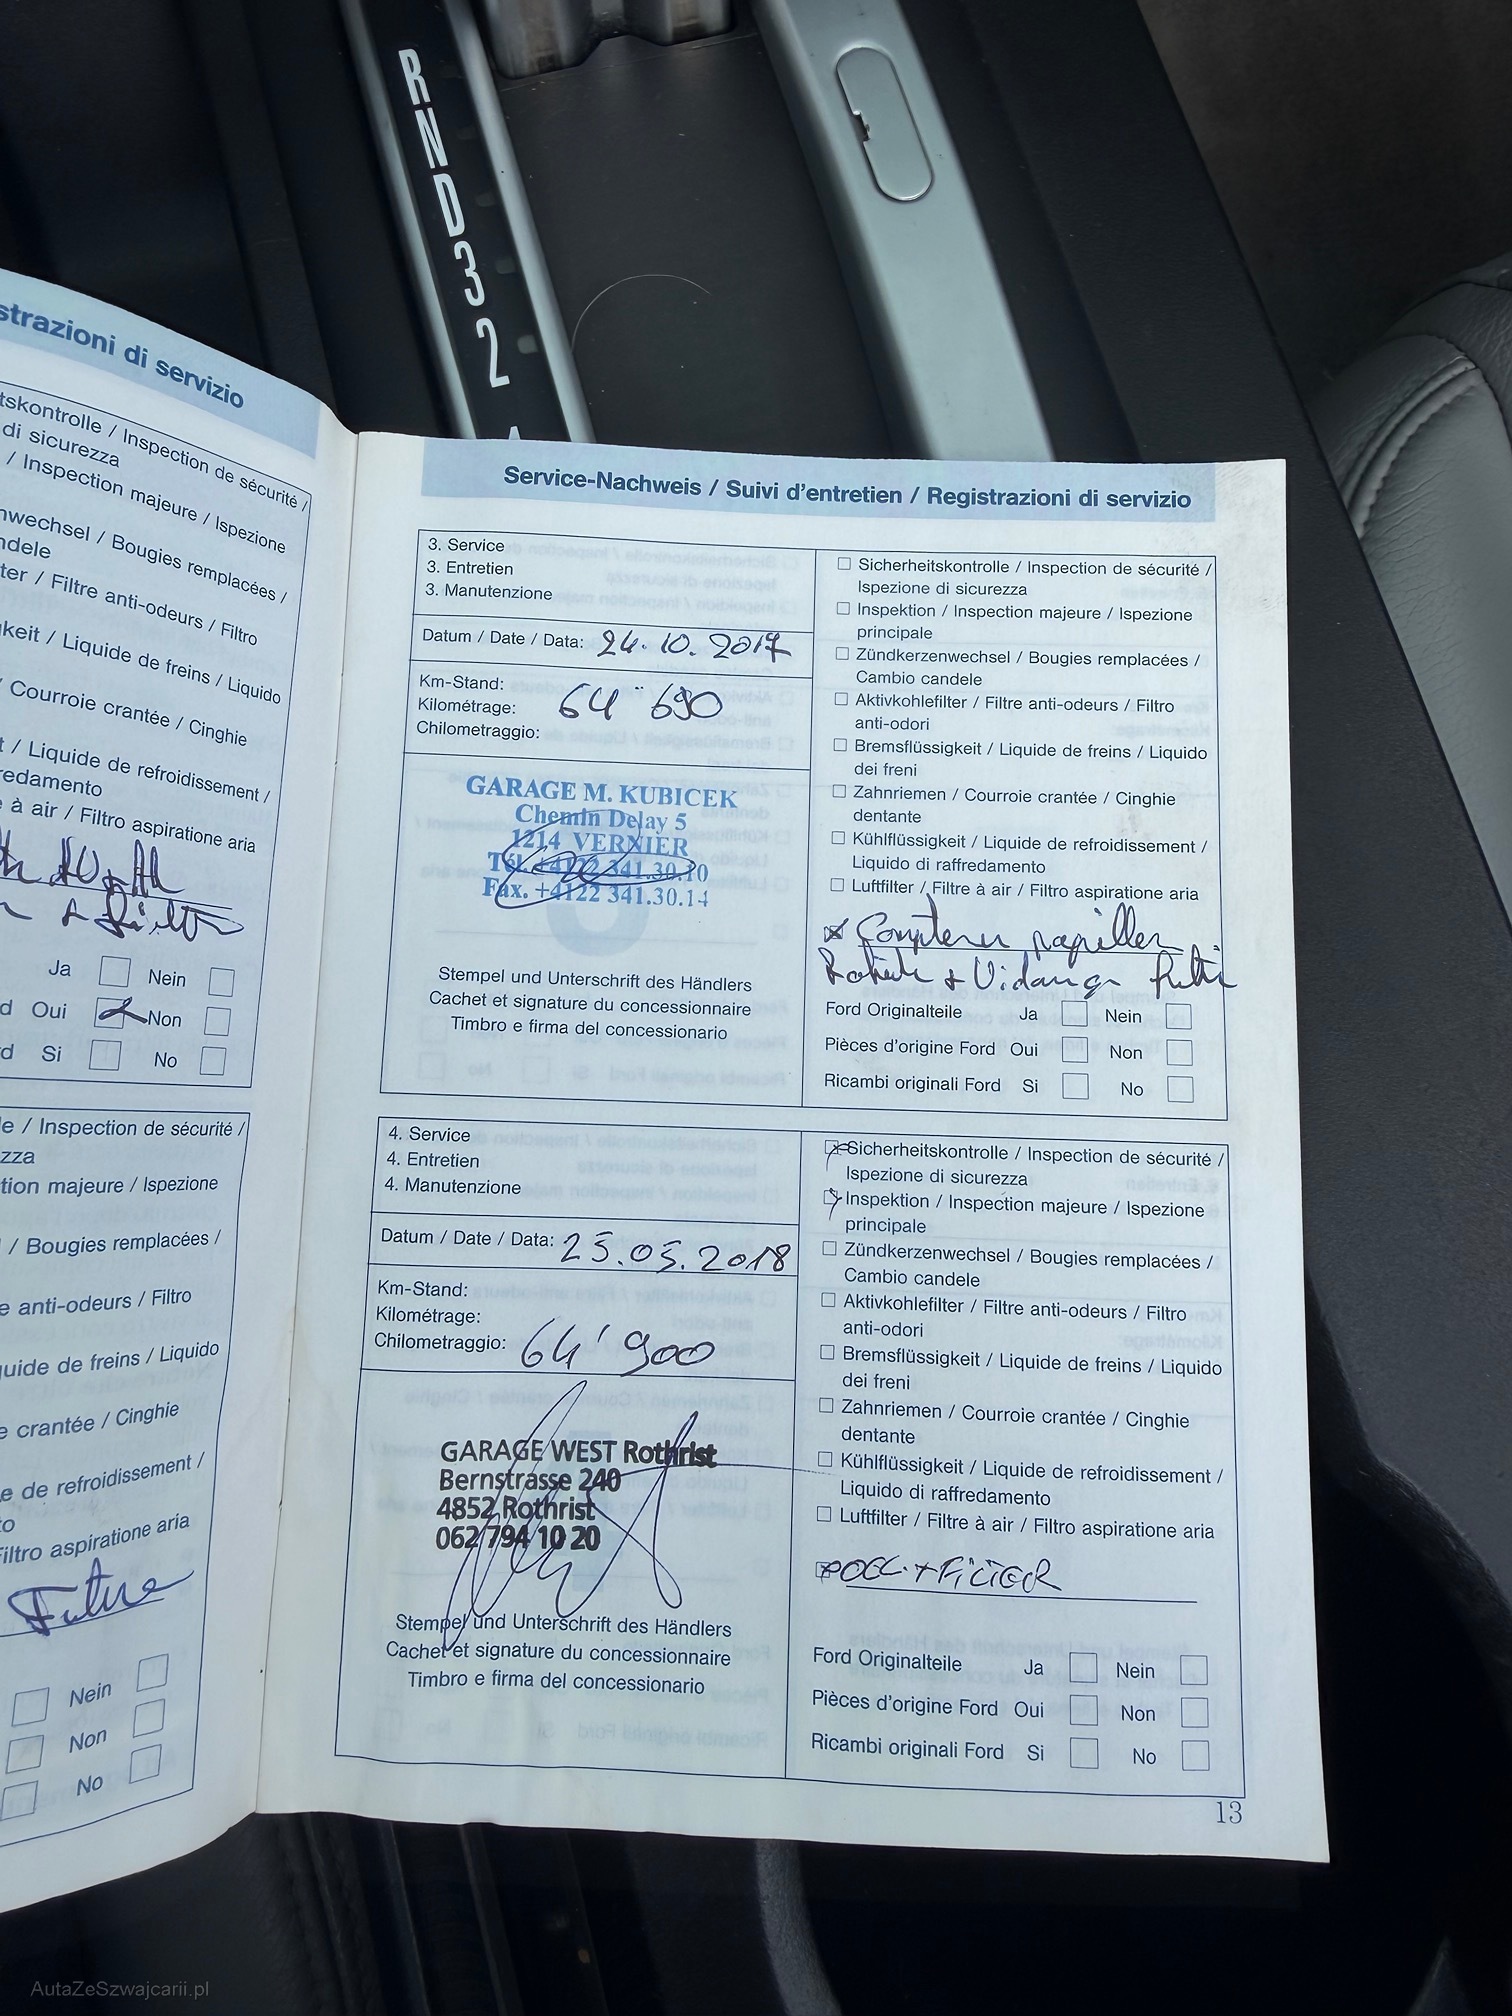 R
N
D
3
2
strazioni di servizio
tskontrolle / Inspection de sécurité /
di sicurezza
/ Inspection majeure / Ispezione
nwechsel / Bougies remplacées /
ndele
ter / Filtre anti-odeurs / Filtro
gkeit / Liquide de freins / Liquido
/ Courroie crantée / Cinghie
t / Liquide de refroidissement /
redamento
e à air / Filtro aspiratione aria
Ja Nein
d Oui Non
d Si No
le / Inspection de sécurité /
zza
tion majeure / Ispezione
/ Bougies remplacées /
e anti-odeurs / Filtro
quide de freins / Liquido
e crantée / Cinghie
e de refroidissement /
to
Filtro aspiratione aria
Nein
Non
No
Service-Nachweis / Suivi d'entretien / Registrazioni di servizio
3. Service
3. Entretien
3. Manutenzione
Datum / Date / Data: 24.10.2017
Km-Stand:
Kilométrage: 64 690
Chilometraggio:
GARAGE M. KUBICEK
Chemin Delay 5
1214 VERNIER
Tél. +4122 341.30.10
Fax. +4122 341.30.14
Stempel und Unterschrift des Händlers
Cachet et signature du concessionnaire
Timbro e firma del concessionario
Sicherheitskontrolle / Inspection de sécurité /
Ispezione di sicurezza
Inspektion / Inspection majeure / Ispezione
principale
Zündkerzenwechsel / Bougies remplacées /
Cambio candele
Aktivkohlefilter / Filtre anti-odeurs / Filtro
anti-odori
Bremsflüssigkeit / Liquide de freins / Liquido
dei freni
Zahnriemen / Courroie crantée / Cinghie
dentante
Kühlflüssigkeit / Liquide de refroidissement /
Liquido di raffredamento
Luftfilter / Filtre à air / Filtro aspiratione aria
+ Vidange
Ford Originalteile Ja Nein
Pièces d'origine Ford Oui Non
Ricambi originali Ford Si No
4. Service
4. Entretien
4. Manutenzione
Datum / Date / Data: 25.05.2018
Km-Stand:
Kilométrage:
Chilometraggio: 64'900
GARAGE WEST Rothrist
Bernstrasse 240
4852 Rothrist
062 794 10 20
Stempel und Unterschrift des Händlers
Cachet et signature du concessionnaire
Timbro e firma del concessionario
Sicherheitskontrolle / Inspection de sécurité /
Ispezione di sicurezza
Inspektion / Inspection majeure / Ispezione
principale
Zündkerzenwechsel / Bougies remplacées /
Cambio candele
Aktivkohlefilter / Filtre anti-odeurs / Filtro
anti-odori
Bremsflüssigkeit / Liquide de freins / Liquido
dei freni
Zahnriemen / Courroie crantée / Cinghie
dentante
Kühlflüssigkeit / Liquide de refroidissement /
Liquido di raffredamento
Luftfilter / Filtre à air / Filtro aspiratione aria
+ FILTER
Ford Originalteile Ja Nein
Pièces d'origine Ford Oui Non
Ricambi originali Ford Si No
13
AutaZeSzwajcarii.pl